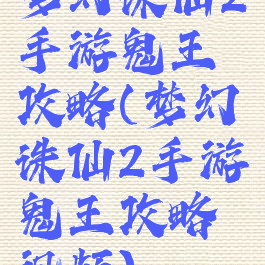 梦幻诛仙2
手游鬼王
攻略(梦幻
诛仙2手游
鬼王攻略
视频)